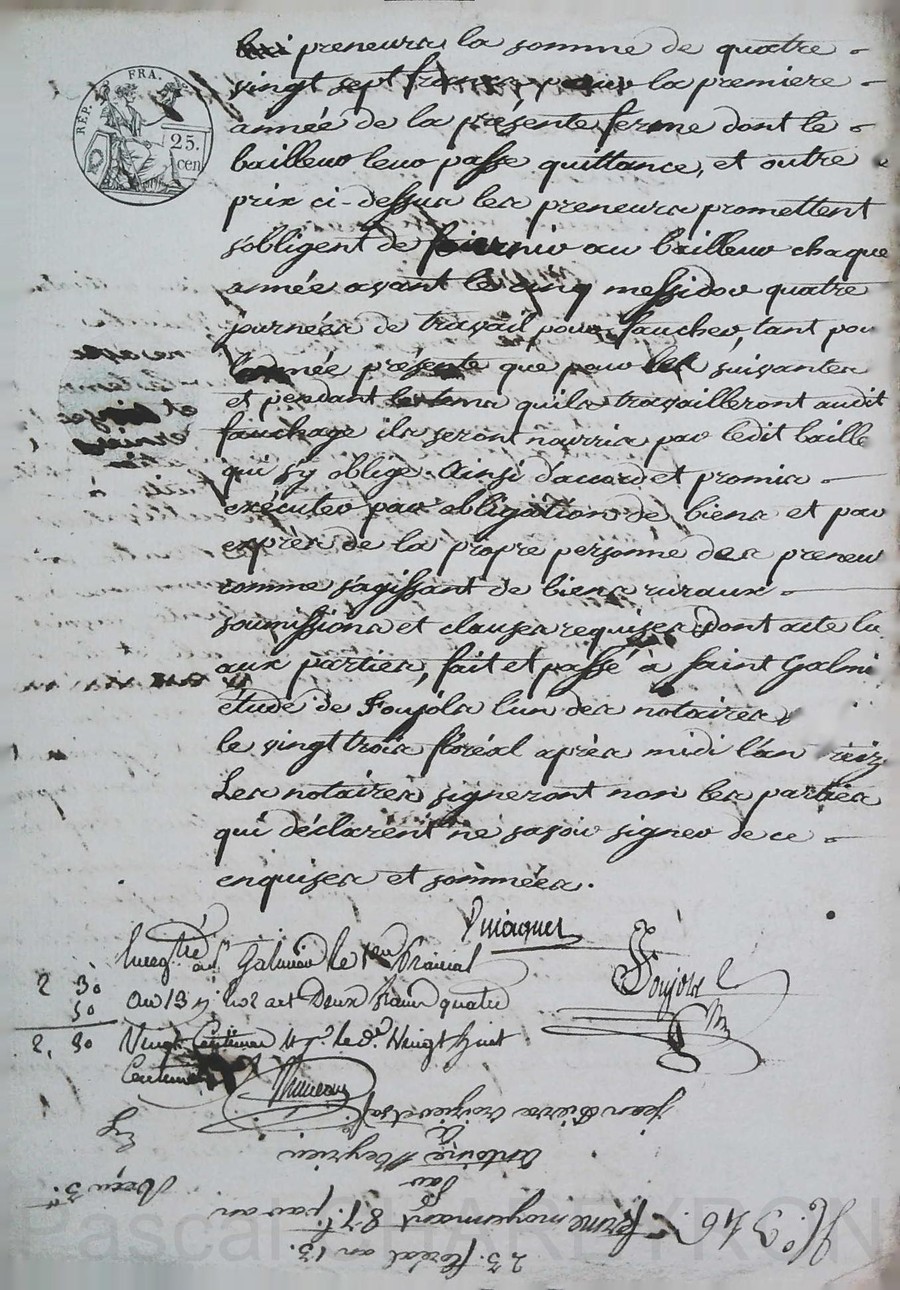 RÉP. FRA.
25.
cen
preneurs la somme de quatre
vingt sept francs pour la premiere
année de la présente ferme dont le
bailleur leur passe quittance, et outre
prix ci-dessus les preneurs promettent
s'obligent de fournir au bailleur chaque
année avant le cinq messidor quatre
journées de travail pour faucher, tant pou
l'année présente que pour les suivantes
et pendant le tems qu'ils travailleront audit
fauchage ils seront nourris par ledit baille
qui s'y oblige. Ainsi d'accord et promis
exécuter par obligation de biens et par
exprès de la propre personne des preneur
comme s'agissant de biens ruraux
soumissions et clauses requises Dont acte lu
aux parties, fait et passé à Saint Galmi
étude de Foujols l'un des notaires
le vingt trois floréal après midi l'an treiz
Les notaires signeront non les parties
qui déclarent ne savoir signer de ce
enquises et sommées.
Foujols
Galmier le Prairial
2 30
an 13 deux francs quatre
50
2, 80
Vingt Centimes
Centimes
jean Pierre
antoine Meyrieu
par
Reçu 3.
No. 346. ferme moyennant 87 f. par an
23. floréal an 13.
Pascal CHAREYRON